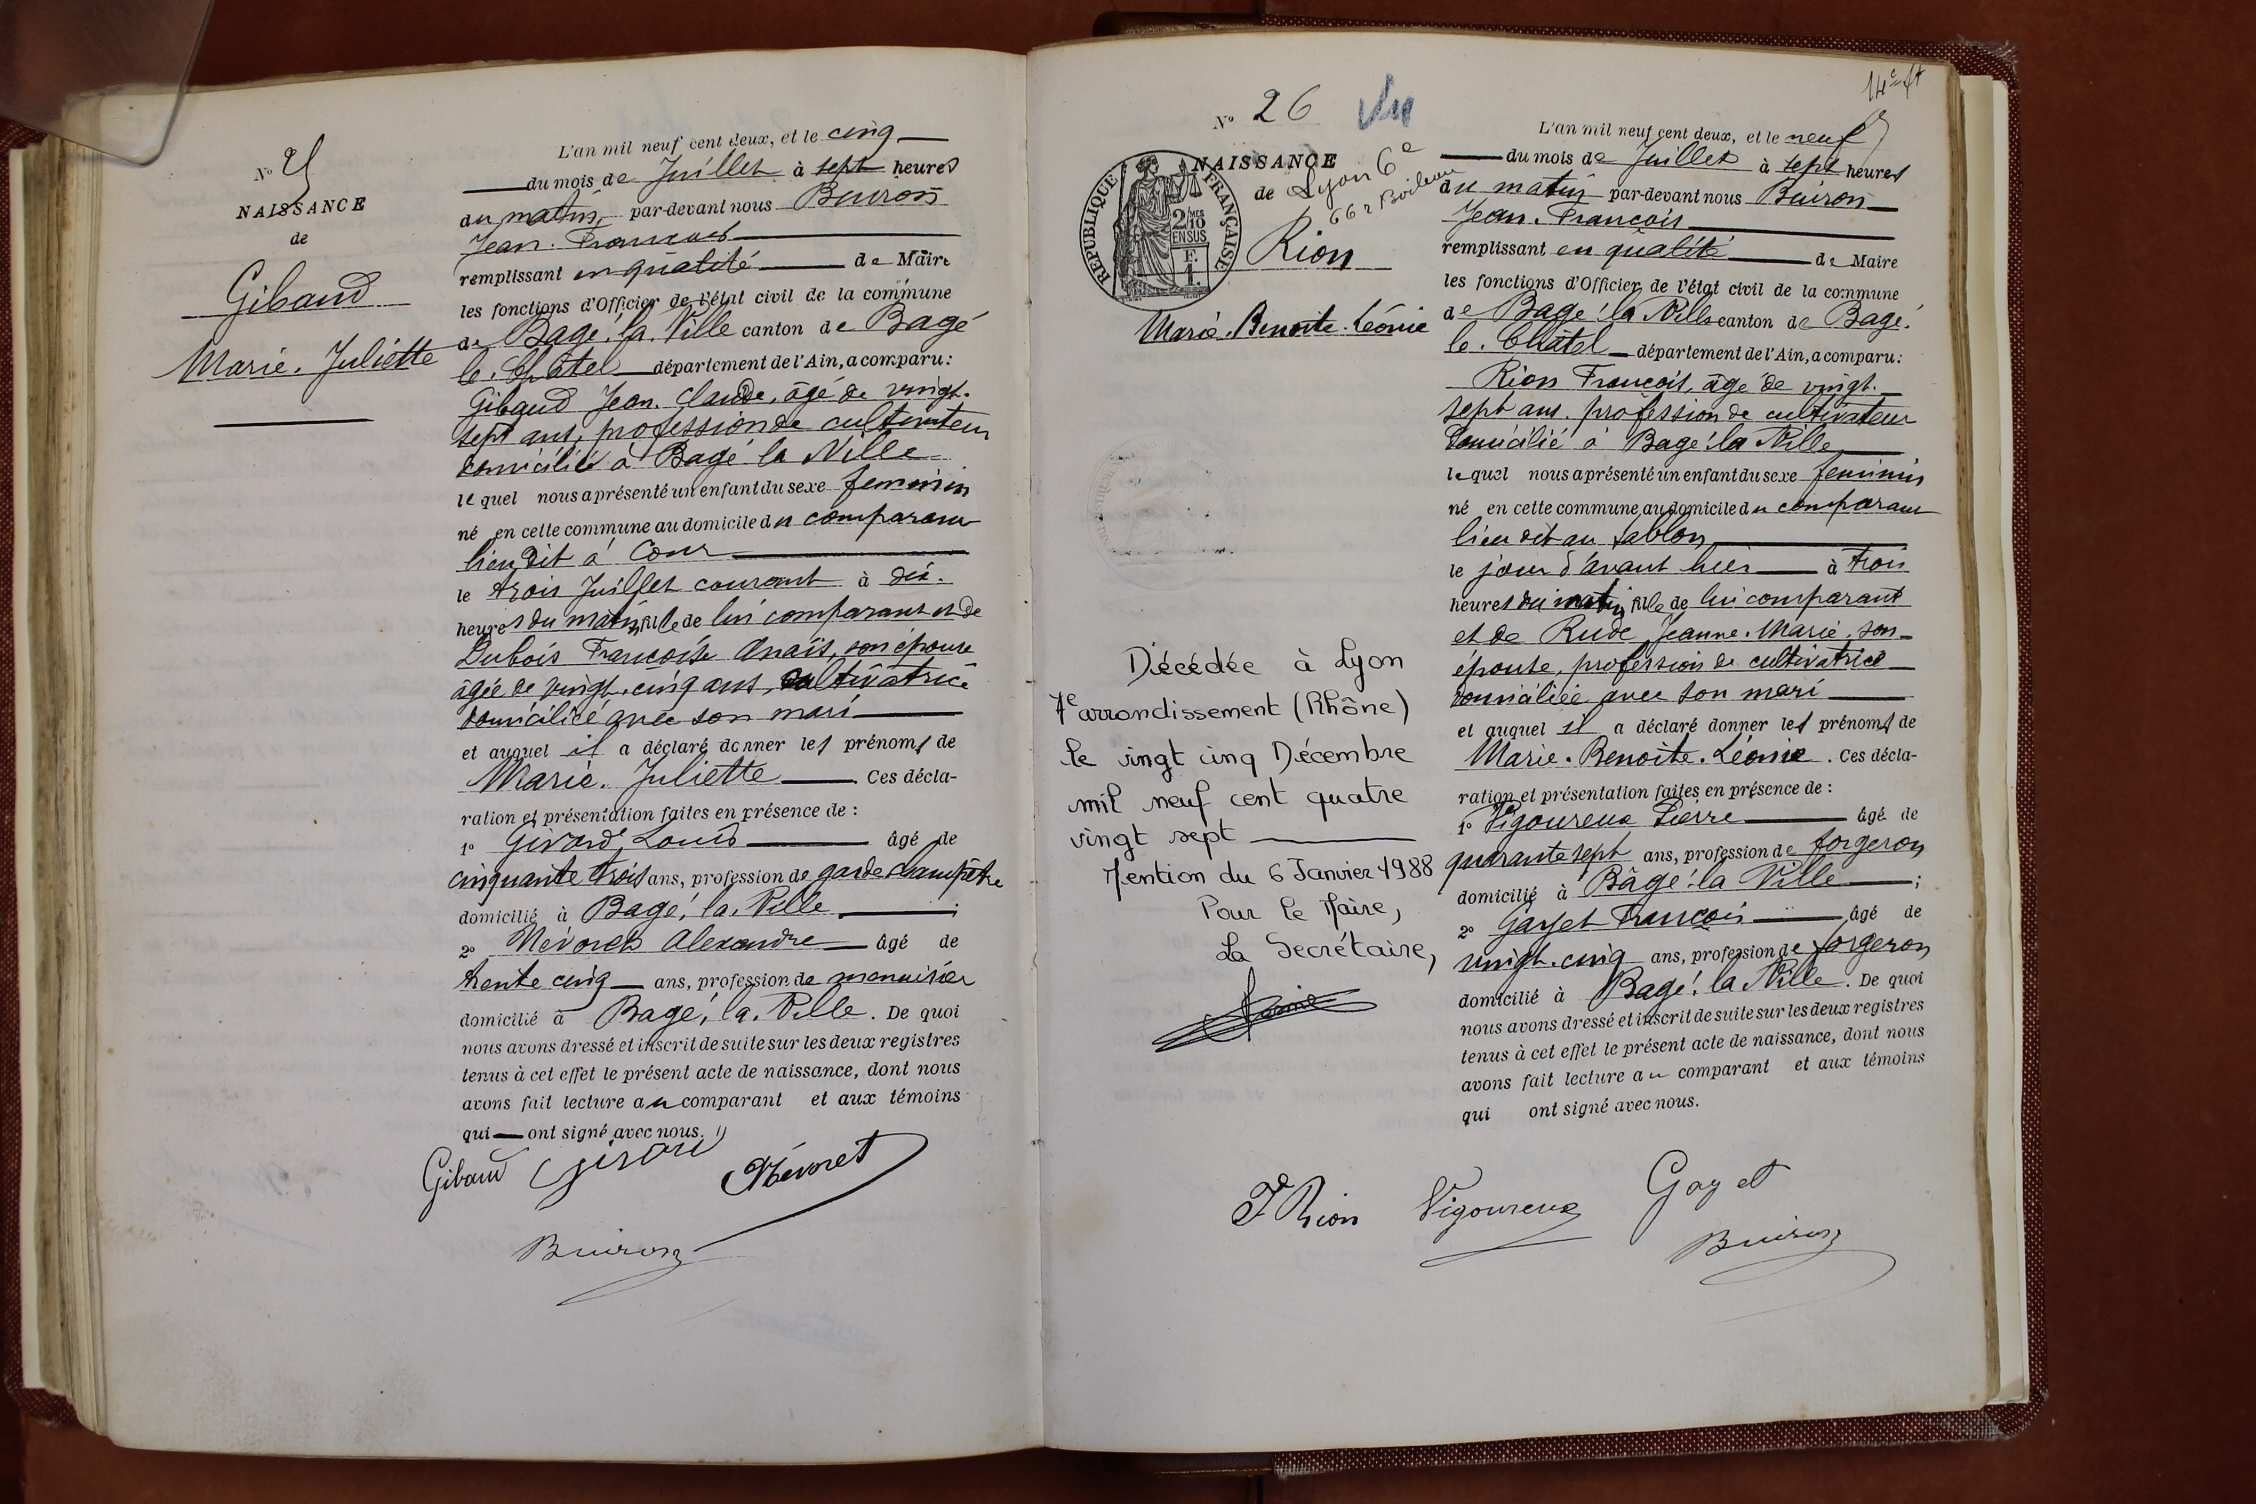 Nº 25
NAISSANCE
de
Gibaud
Marie. Juliette
L'an mil neuf cent deux, et le cinq
du mois de Juillet à sept heures
du matin, par-devant nous Buiron
Jean. François
remplissant en qualité de Maire
les fonctions d'Officier de l'état civil de la commune
de Bagé. la. Ville canton de Bagé
le. Châtel département de l'Ain, a comparu :
Gibaud Jean. Claude, âgé de vingt.
sept ans, profession de cultivateur
domicilié à Bagé la Ville
lequel nous a présenté un enfant du sexe feminin
né en cette commune au domicile du comparant
lieu dit à Cour
le trois Juillet courant à dix.
heures du matin, fille de lui comparant et de
Dubois Françoise Anaïs, son épouse
âgée de vingt. cinq ans, cultivatrice
domicilié avec son mari
et auquel il a déclaré donner les prénoms de
Marie. Juliette Ces décla-
ration et présentation faites en présence de :
1º Girard Louis âgé de
cinquante trois ans, profession de garde champêtre
domicilié à Bagé. la. Ville ;
2º Névoret Alexandre âgé de
trente cinq ans, profession de menuisier
domicilié à Bagé. la. Ville. De quoi
nous avons dressé et inscrit de suite sur les deux registres
tenus à cet effet le présent acte de naissance, dont nous
avons fait lecture au comparant et aux témoins
qui ont signé avec nous.
Gibaud Girard Névoret
Buiron
14e ft
Nº 26 Vu
NAISSANCE
de Lyon 6e
66 r Boileau
RÉPUBLIQUE FRANÇAISE
2/10 MES
EN SUS
F.
1.
Rion
Marie. Benoite. Léonie
Décédée à Lyon
7e arrondissement (Rhône)
le vingt cinq Décembre
mil neuf cent quatre
vingt sept
Mention du 6 Janvier 1988
Pour le Maire,
La Secrétaire,
L'an mil neuf cent deux, et le neuf
du mois de Juillet à sept heures
du matin par-devant nous Buiron
Jean. François
remplissant en qualité de Maire
les fonctions d'Officier de l'état civil de la commune
de Bagé. la Ville canton de Bagé.
le. Châtel département de l'Ain, a comparu :
Rion François, âgé de vingt.
sept ans. profession de cultivateur
domicilié à Bagé. la Ville
lequel nous a présenté un enfant du sexe feminin
né en cette commune au domicile du comparant
lieu dit au Sablon
le jour d'avant hier à trois
heures du matin fille de lui comparant
et de Rude Jeanne. Marie, son
épouse, profession de cultivatrice
domiciliée avec son mari
et auquel il a déclaré donner les prénoms de
Marie. Benoite. Léonie. Ces décla-
ration et présentation faites en présence de :
1º Vigoureux Pierre âgé de
quarante sept ans, profession de forgeron
domicilié à Bâgé. la Ville ;
2º Gayet François âgé de
vingt. cinq ans, profession de forgeron
domicilié à Bagé. la Ville. De quoi
nous avons dressé et inscrit de suite sur les deux registres
tenus à cet effet le présent acte de naissance, dont nous
avons fait lecture au comparant et aux témoins
qui ont signé avec nous.
F Rion Vigoureux Gayet
Buiron